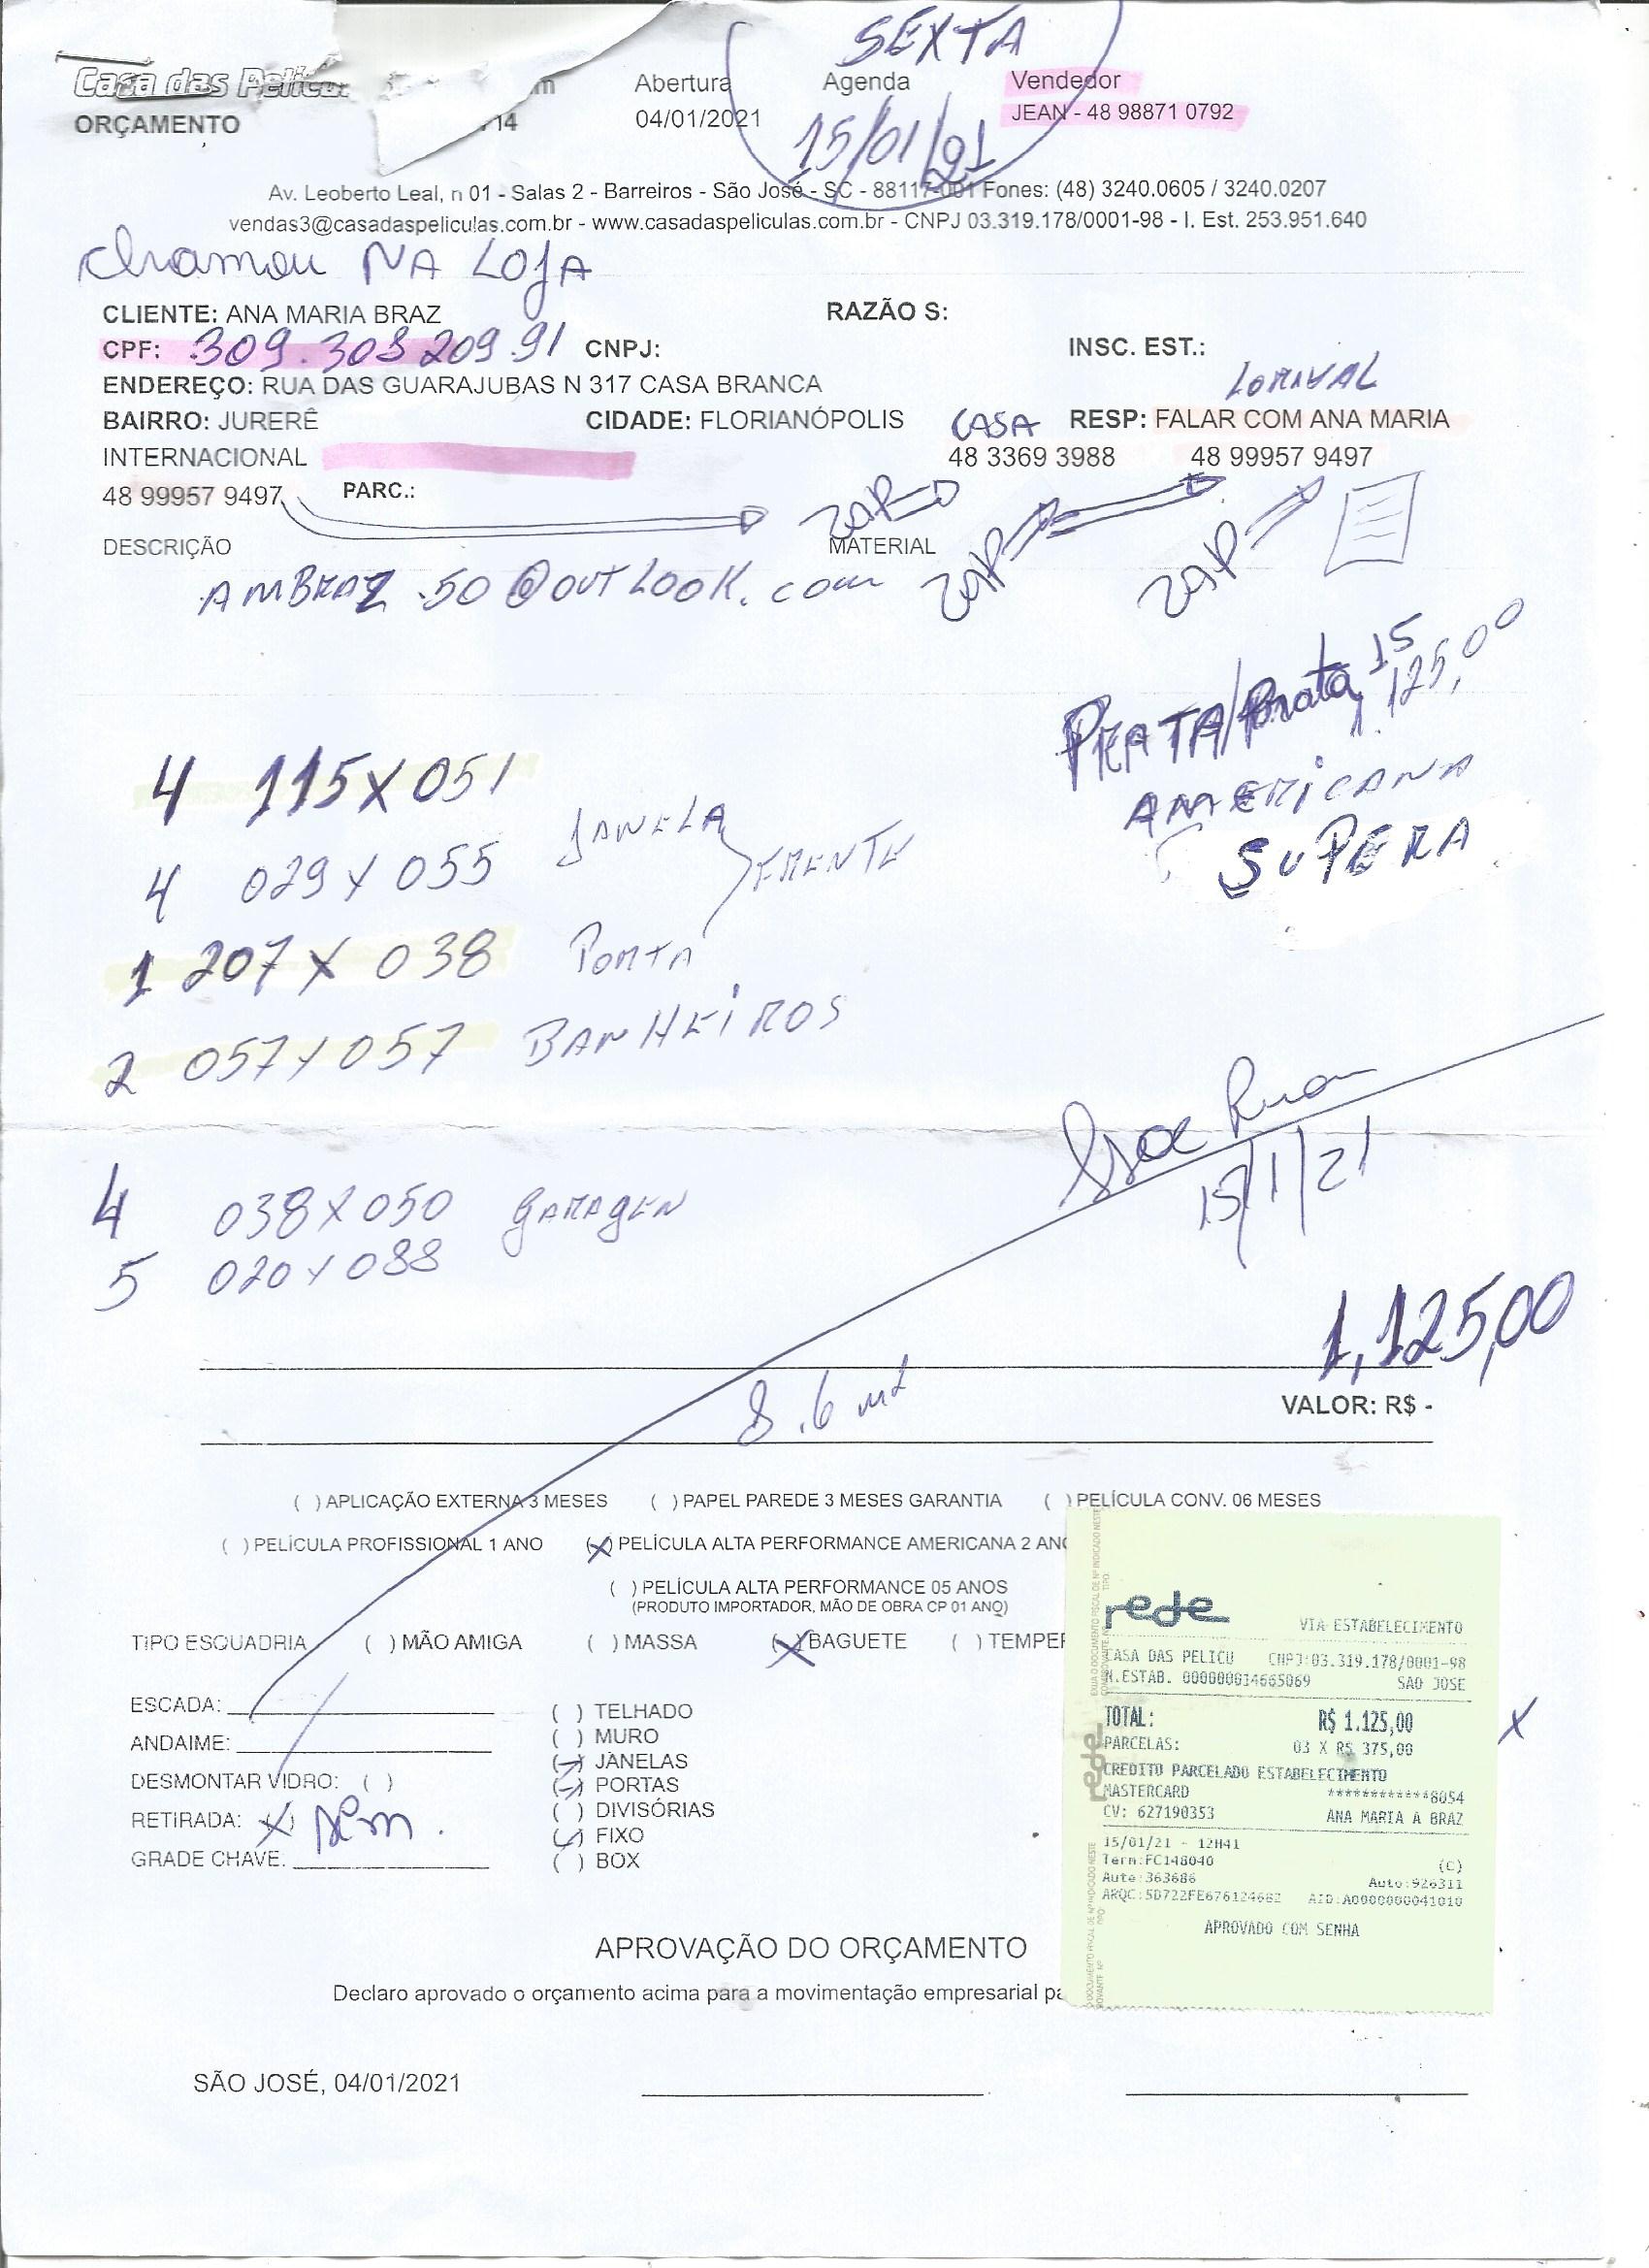 SEXTA
Casa das Pelícu
Abertura Agenda Vendedor
ORÇAMENTO 14 04/01/2021 15/01/21 JEAN - 48 98871 0792
Av. Leoberto Leal, n 01 - Salas 2 - Barreiros - São José - SC - 88117-001 Fones: (48) 3240.0605 / 3240.0207
vendas3@casadaspeliculas.com.br - www.casadaspeliculas.com.br - CNPJ 03.319.178/0001-98 - I. Est. 253.951.640
chamou NA LOJA
CLIENTE: ANA MARIA BRAZ RAZÃO S:
CPF: 309.308 209.91 CNPJ: INSC. EST.:
ENDEREÇO: RUA DAS GUARAJUBAS N 317 CASA BRANCA LORIVAL
BAIRRO: JURERÊ CIDADE: FLORIANÓPOLIS CASA RESP: FALAR COM ANA MARIA
INTERNACIONAL 48 3369 3988 48 99957 9497
48 99957 9497 PARC.:
ZAP ZAP ZAP
DESCRIÇÃO MATERIAL
AMBRAZ.50@OUTLOOK.com
PRATA/Prata 15 125,00
AMERICANA
SUPERA
4 115X051
4 029X055 JANELA
FRENTE
1 207X038 PORTA
2 057X057 BANHEIROS
15/1/21
4 038X050 GARAGEN
5 020X088
1,125,00
8.6 m²
VALOR: R$ -
( ) APLICAÇÃO EXTERNA 3 MESES ( ) PAPEL PAREDE 3 MESES GARANTIA ( ) PELÍCULA CONV. 06 MESES
( ) PELÍCULA PROFISSIONAL 1 ANO (X) PELÍCULA ALTA PERFORMANCE AMERICANA 2 ANO
( ) PELÍCULA ALTA PERFORMANCE 05 ANOS
(PRODUTO IMPORTADOR, MÃO DE OBRA CP 01 ANO)
TIPO ESQUADRIA ( ) MÃO AMIGA ( ) MASSA (X) BAGUETE ( ) TEMPER
ESCADA:
ANDAIME:
DESMONTAR VIDRO: ( )
RETIRADA: (X) sem.
GRADE CHAVE:
( ) TELHADO
( ) MURO
(✓) JANELAS
(✓) PORTAS
( ) DIVISÓRIAS
(✓) FIXO
( ) BOX
rede
VIA ESTABELECIMENTO
CASA DAS PELICU CNPJ:03.319.178/0001-98
N.ESTAB. 000000014665069 SAO JOSE
TOTAL: R$ 1.125,00 X
PARCELAS: 03 X R$ 375,00
CREDITO PARCELADO ESTABELECIMENTO
MASTERCARD ************8054
CV: 627190353 ANA MARIA A BRAZ
15/01/21 - 12H41
Term:FC148040 (C)
Aute:363686 Auto:926311
ARQC:5D722FE676124682 AID:A0000000041010
APROVADO COM SENHA
APROVAÇÃO DO ORÇAMENTO
Declaro aprovado o orçamento acima para a movimentação empresarial pa
SÃO JOSÉ, 04/01/2021